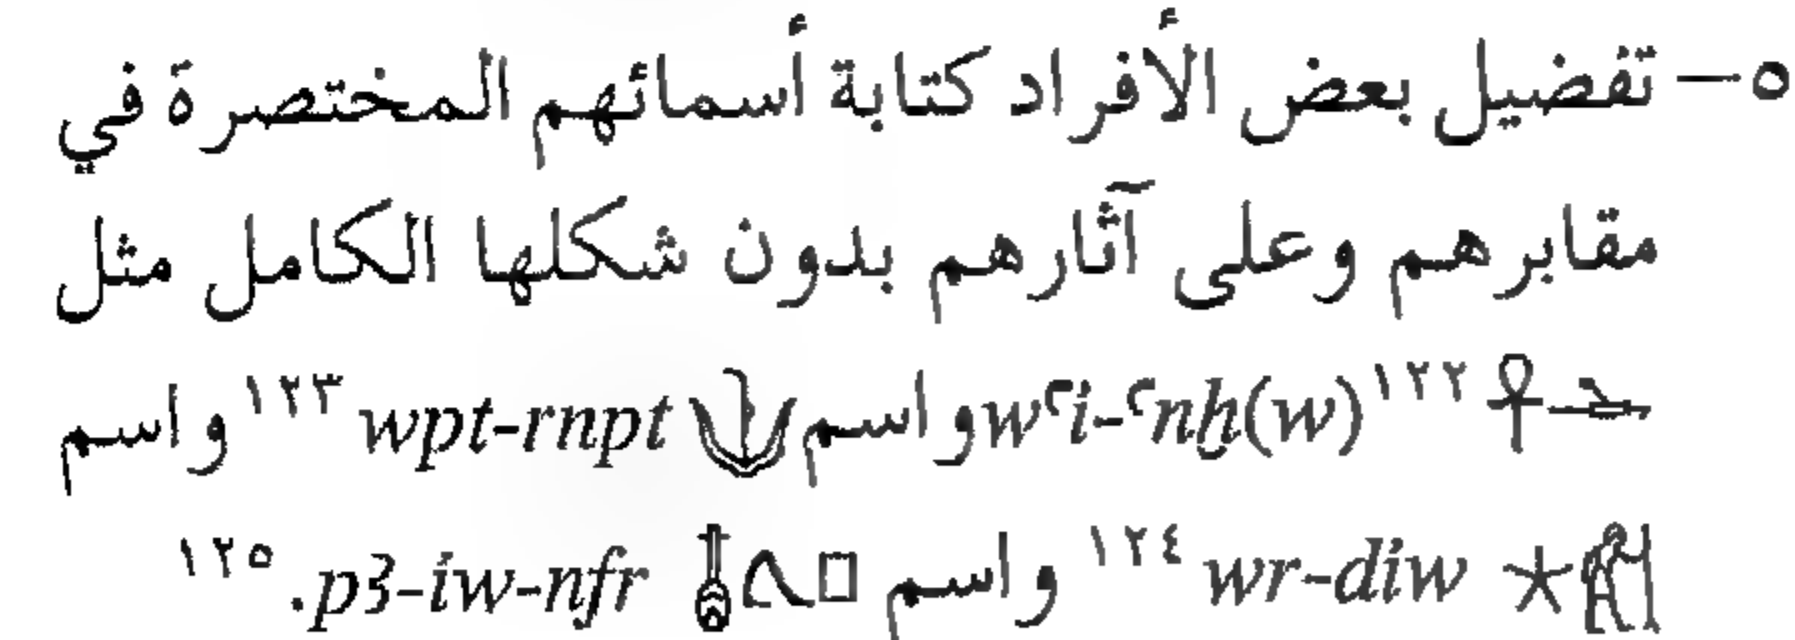 ٥– تفضيل بعض الأفراد كتابة أسمائهم المختصرة في
مقابرهم وعلى آثارهم بدون شكلها الكامل مثل
𓌡𓋹 ١٢٢ wꜥi-ꜥnḫ(w) واسم 𓄋 wpt-rnpt ١٢٣ واسم
𓀗𓇼 wr-diw ١٢٤ واسم 𓊪𓂻𓄤 p3-iw-nfr ١٢٥.